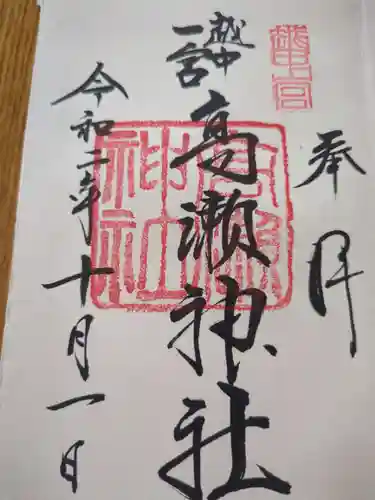 奉拝
越中
一宮
高瀬神社
高瀬神社
令和二年十月一日